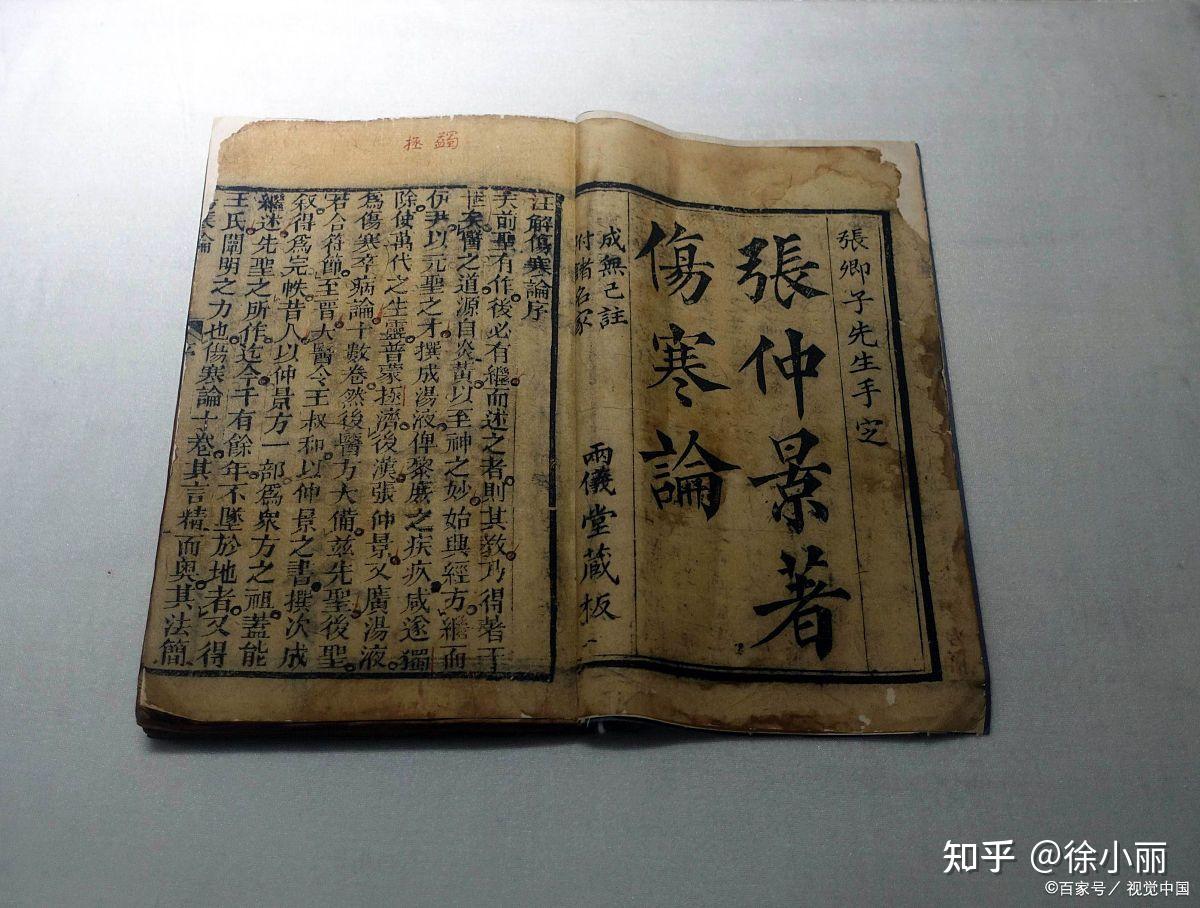 張卿子先生手定
張仲景著
傷寒論
成無己註
附諸名家
兩儀堂藏板
拯 蠲
注解傷寒論序
夫前聖有作後必有繼而述之者則其教乃得著于
世矣醫之道源自炎黃以至神之妙始興經方繼而
伊尹以元聖之才撰成湯液俾黎庶之疾疚咸遂蠲
除使萬代之生靈普蒙拯濟後漢張仲景又廣湯液
爲傷寒卒病論十數卷然後醫方大備茲先聖後聖
若合符節至晉大醫令王叔和以仲景之書撰次成
叙得爲完帙昔人以仲景方一部爲衆方之祖蓋能
繼述先聖之所作迄今千有餘年不墜於地者又得
王氏闡明之力也傷寒論十卷其言精而奧其法簡
知乎 @徐小丽
©百家号／视觉中国